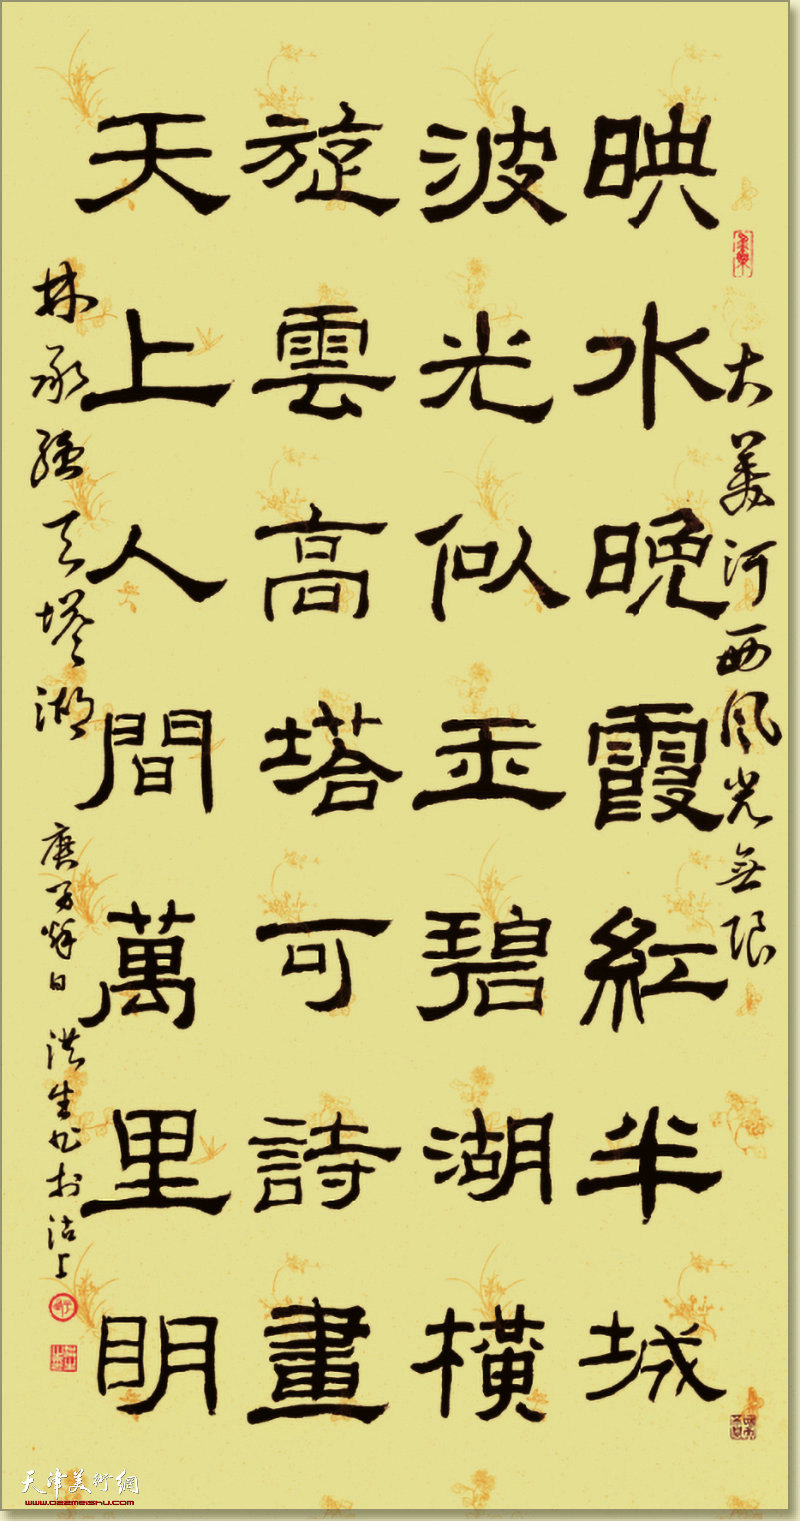 大美河西風光無限
映水晚霞紅半城
波光似玉碧湖橫
旋雲高塔可詩畫
天上人間萬里明
林承强天塔湖
庚子年秋日 洪生書於沽上
天津美術網
www.022meishu.com